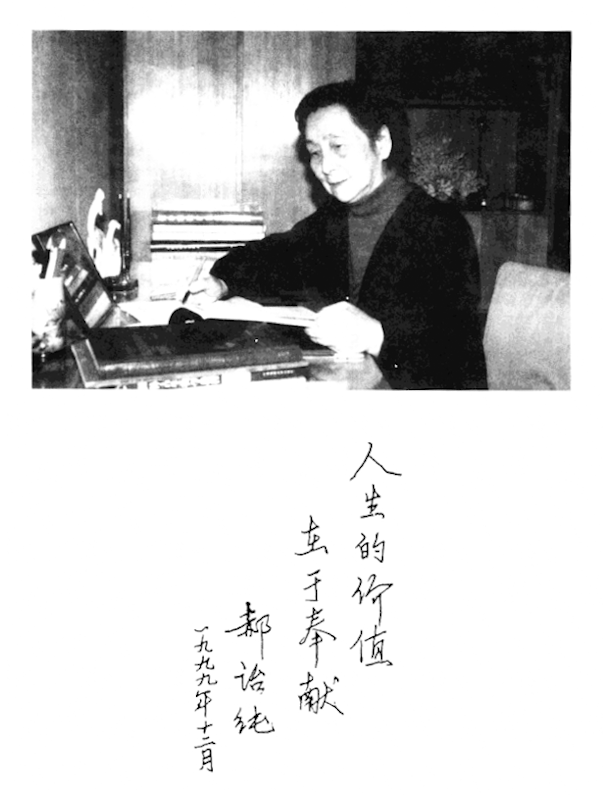 人生的价值
在于奉献
郝诒纯
一九九九年十二月